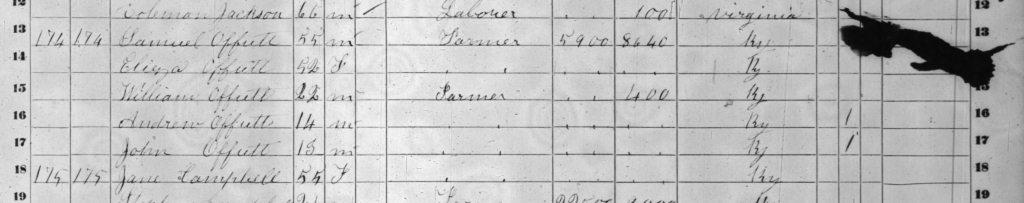 12 Coleman Jackson 66 m / Laborer " " 100 Virginia 12
13 174 174 Samuel Offutt 55 m Farmer 5900 8640 Ky 13
14 Eliza Offutt 52 F " " " " Ky
15 William Offutt 22 m Farmer " " 400 Ky 15
16 Andrew Offutt 14 m " " " " Ky 1 16
17 John Offutt 13 m " " " " Ky 1 17
18 175 175 Jane Campbell 55 F " " " " Ky 18
19 19